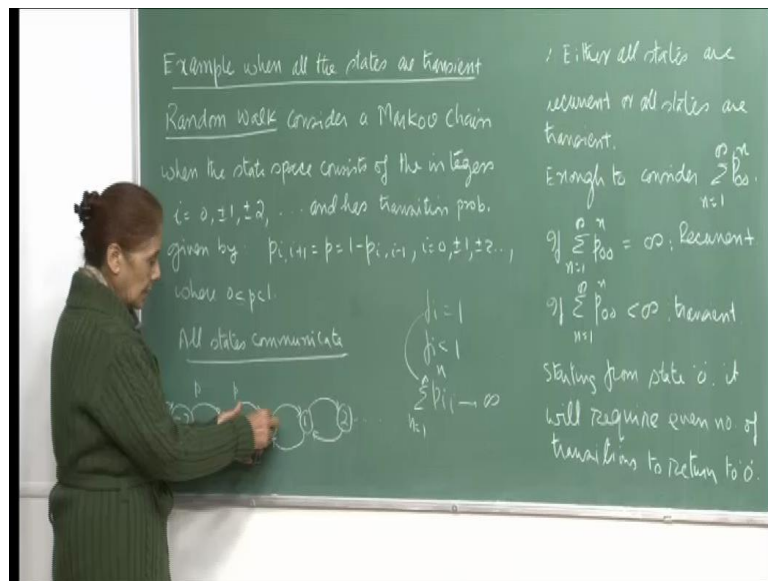 Example when all the states are transient
Random walk consider a Markov Chain
when the state space consists of the integers
i = 0, ±1, ±2, ... and has transition prob.
given by p_{i,i+1} = p = 1 - p_{i,i-1}, i = 0, ±1, ±2...,
where 0<p<1.
All states communicate
p p
1 2 ...
f_i = 1
f_i < 1
∑_{n=1} p_{ii}^n → ∞
: Either all states are
recurrent or all states are
transient.
Enough to consider ∑_{n=1}^∞ p_{00}^n.
If ∑_{n=1}^∞ p_{00}^n = ∞ : Recurrent
If ∑_{n=1}^∞ p_{00}^n < ∞ : transient
Starting from state '0', it
will require even no. of
transitions to return to '0'.